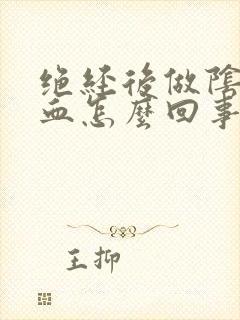 绝经後做陰
血怎麼回事
王抑